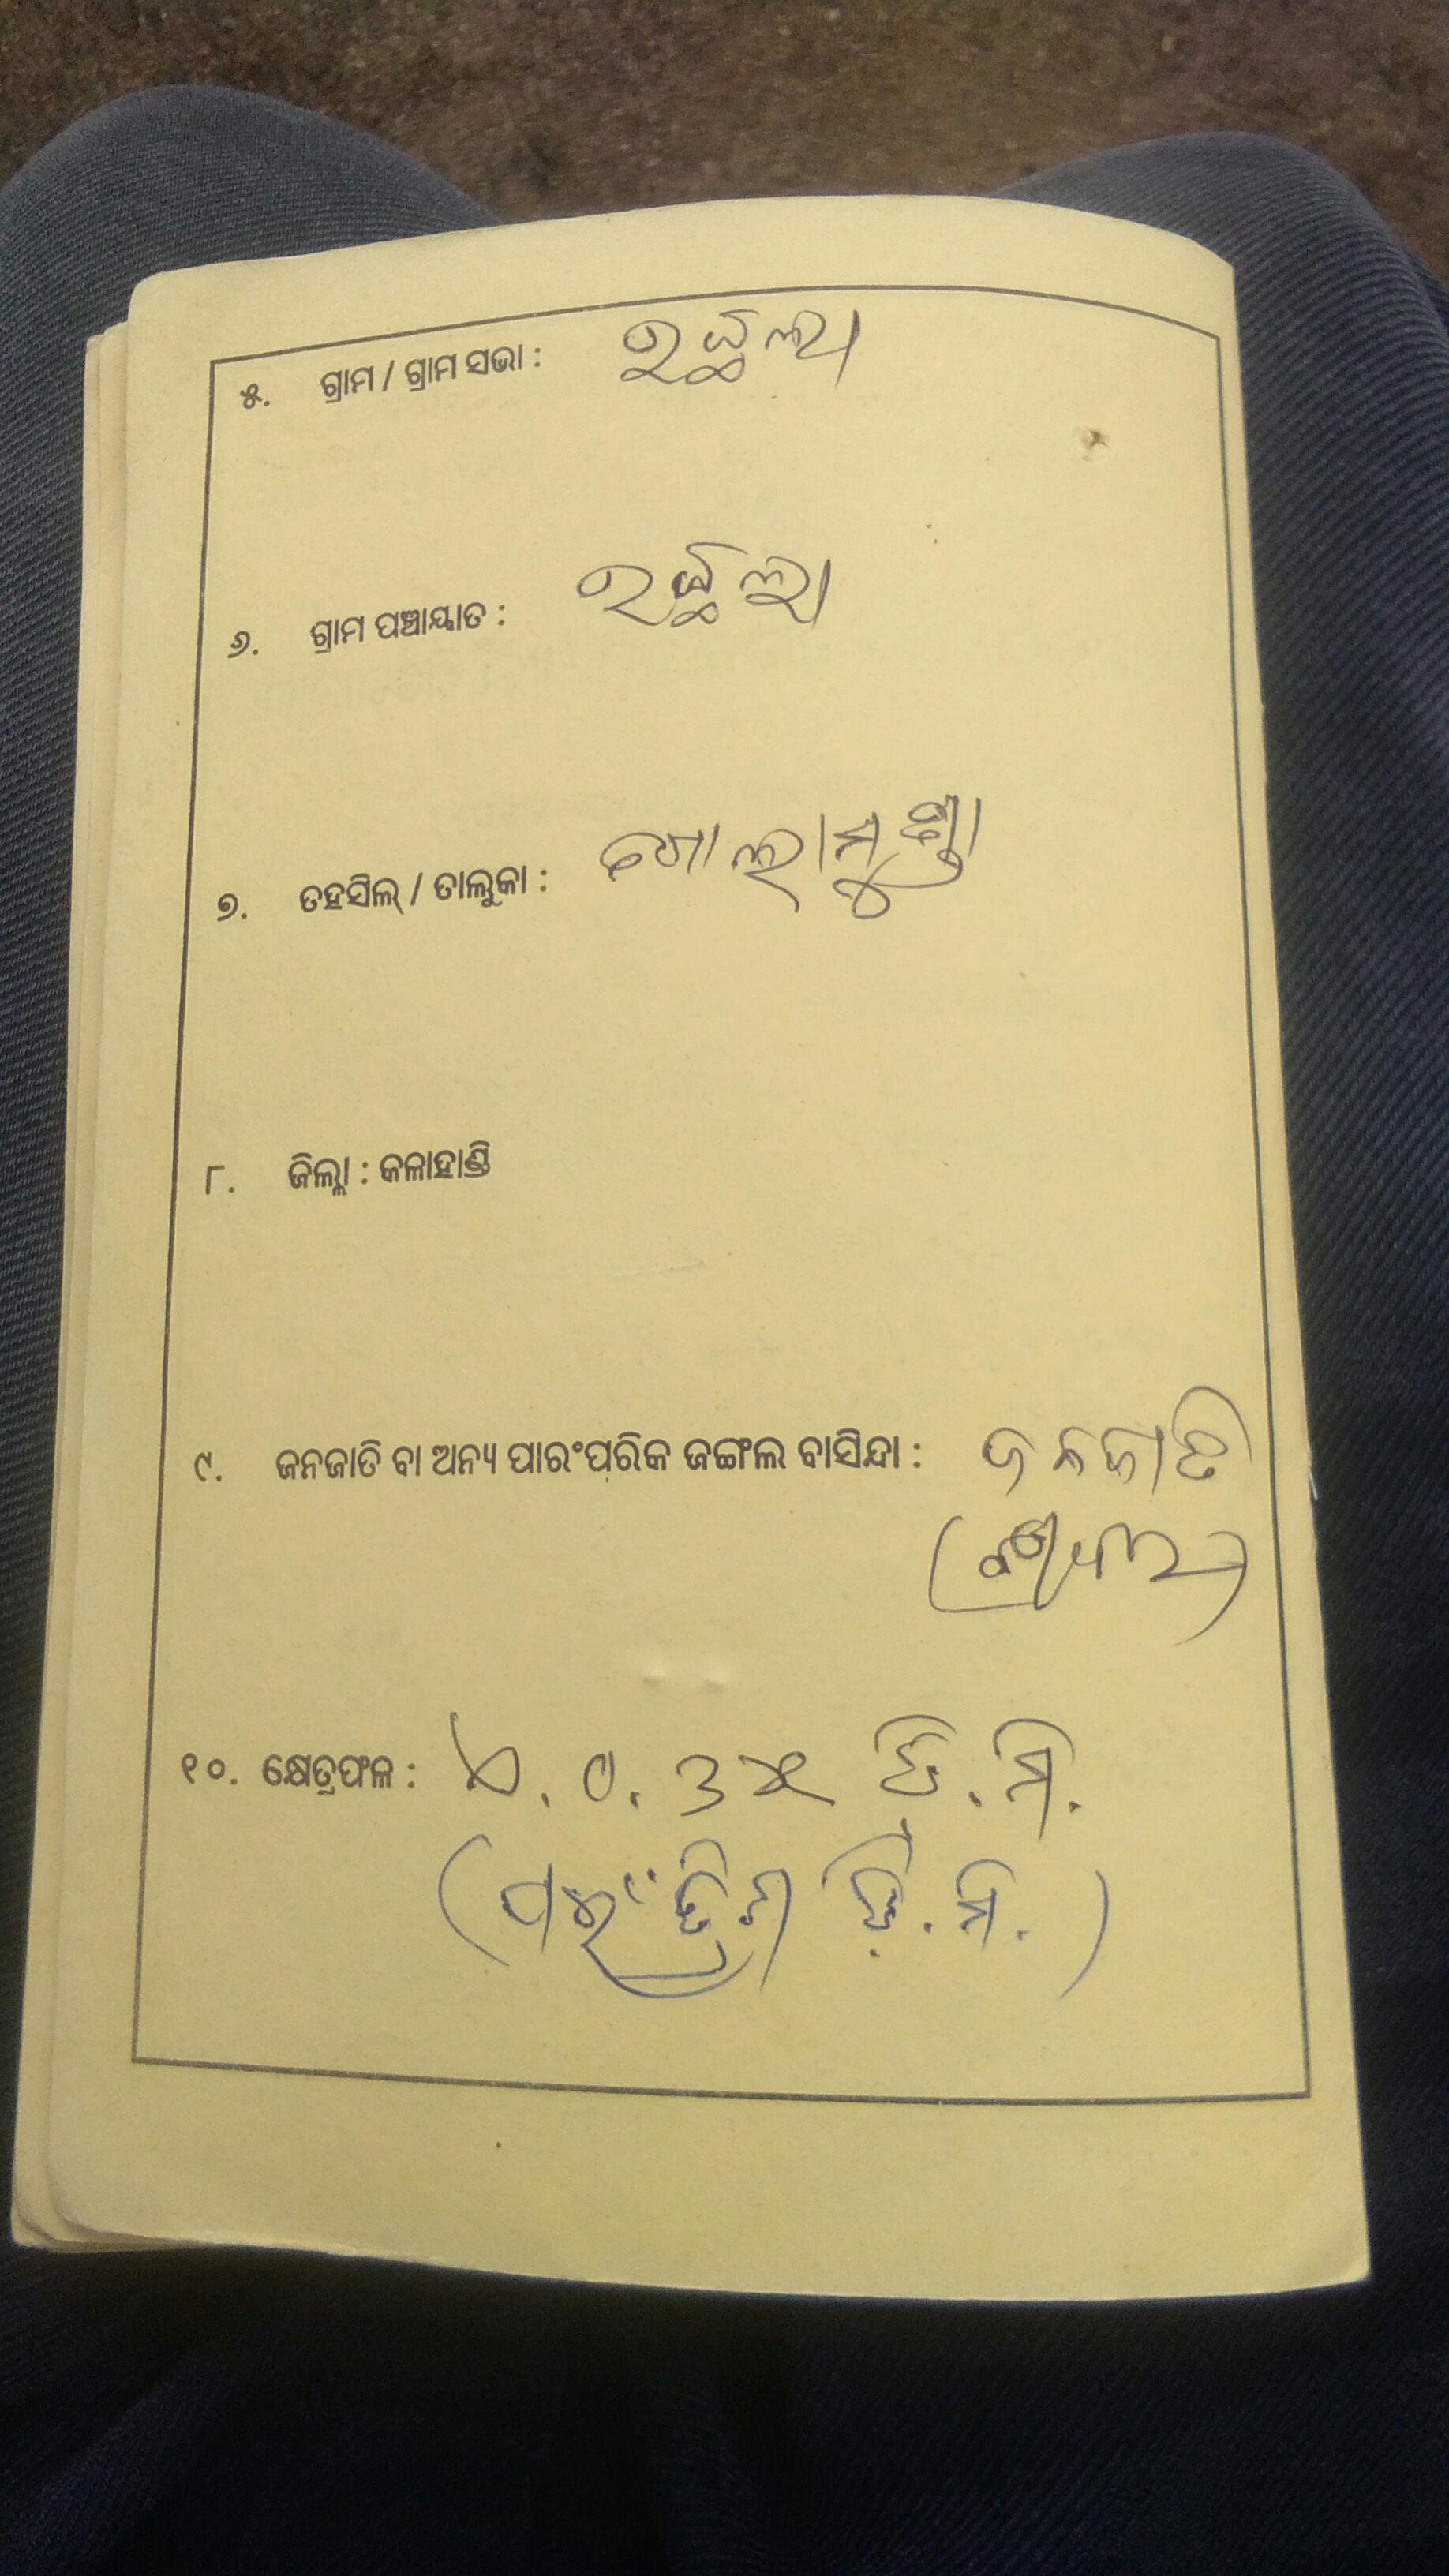 ୫. ଗ୍ରାମ / ଗ୍ରାମ ସଭା :
୬. ଗ୍ରାମ ପଞ୍ଚାୟାତ :
୭. ତହସିଲ୍ / ତାଲୁକା : ଗୋଲାମୁଣ୍ଡା
୮. ଜିଲ୍ଲା : କଳାହାଣ୍ଡି
୯. ଜନଜାତି ବା ଅନ୍ୟ ପାରଂପରିକ ଜଙ୍ଗଲ ବାସିନ୍ଦା : ଜନଜାତି
୧୦. କ୍ଷେତ୍ରଫଳ : ଏ. ୦. ୩୫ ଡି. ମି.
(ପଇଁତ୍ରିଶ ଡି. ମି.)